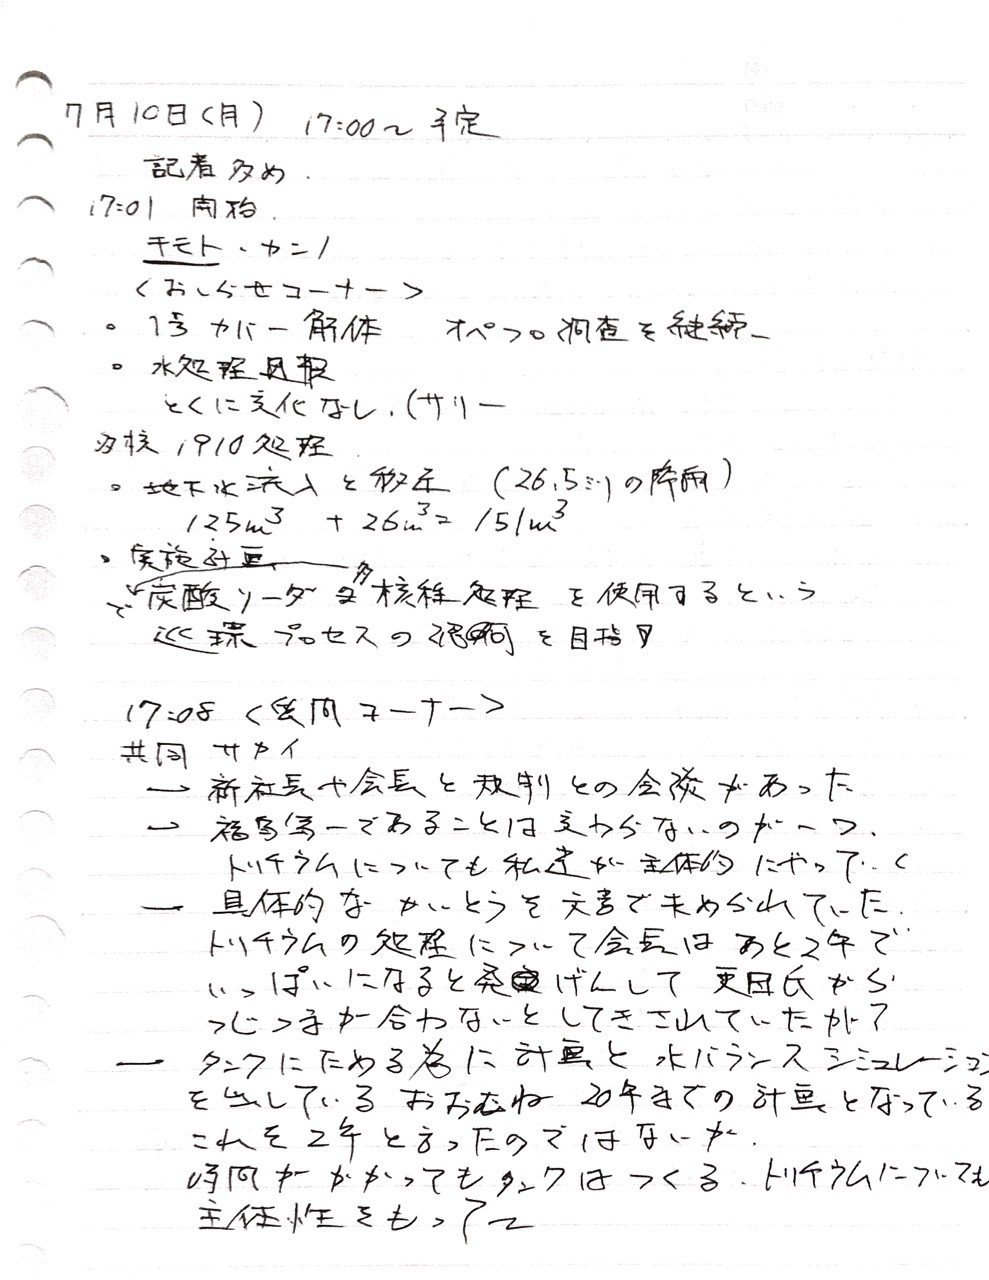 7月10日(月) 17:00〜予定
記者多め.
17:01 開始.
チモト・カンノ
<おしらせコーナー>
。1号カバー解体 オペフロ調査を継続_
。水処理週報
とくに変化なし.(サリー
多核1910処理
。地下水流入と移送 (26.5ミリの降雨)
125m³ + 26m³= 151m³
。実施計画
で炭酸ソーダ 多核種処理を使用するという
循環プロセスの を目指す
17:08 <質問コーナー>
共同 サカイ
— 新社長や会長と規制との会談があった
— 福島第一であることは変わらないのが一つ.
トリチウムについても私達が主体的にやっていく
— 具体的なかいとうを文書で求められていた.
トリチウムの処理について会長はあと2年で
いっぱいになると発げんして更田氏から
つじつまが合わないとしてきされていたが?
— タンクにためる為に計画と水バランスシミュレーション
を出している おおむね20年までの計画となっている
これを2年と言ったのではないか.
時間がかかってもタンクはつくる.トリチウムについても
主体性をもって〜